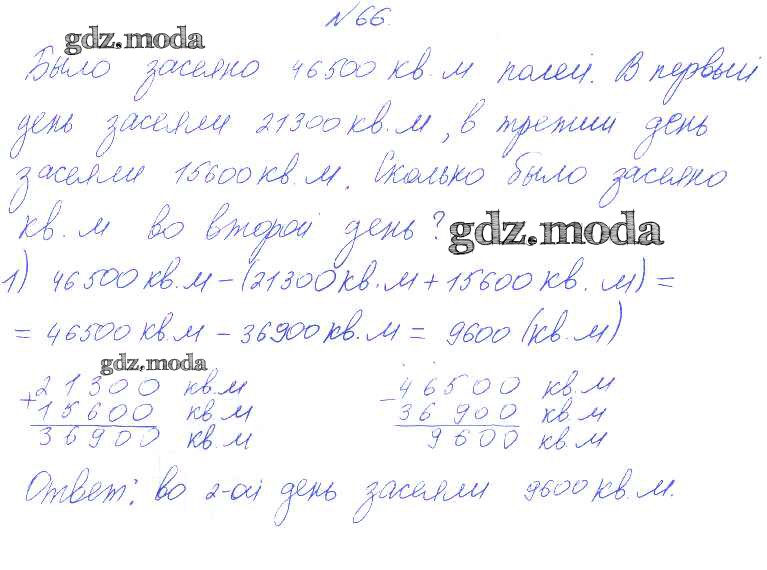 №66.
gdz.moda
Было засеяно 46500 кв.м полей. В первый
день засеяли 21300 кв.м, в третий день
засеяли 15600 кв.м. Сколько было засеяно
кв.м во второй день? gdz.moda
1) 46500 кв.м - (21300 кв.м + 15600 кв.м) =
= 46500 кв.м - 36900 кв.м = 9600 (кв.м)
gdz.moda
+21300 кв.м
15600 кв.м
36900 кв.м
-46500 кв.м
36900 кв.м
9600 кв.м
Ответ: во 2-ой день засеяли 9600 кв.м.